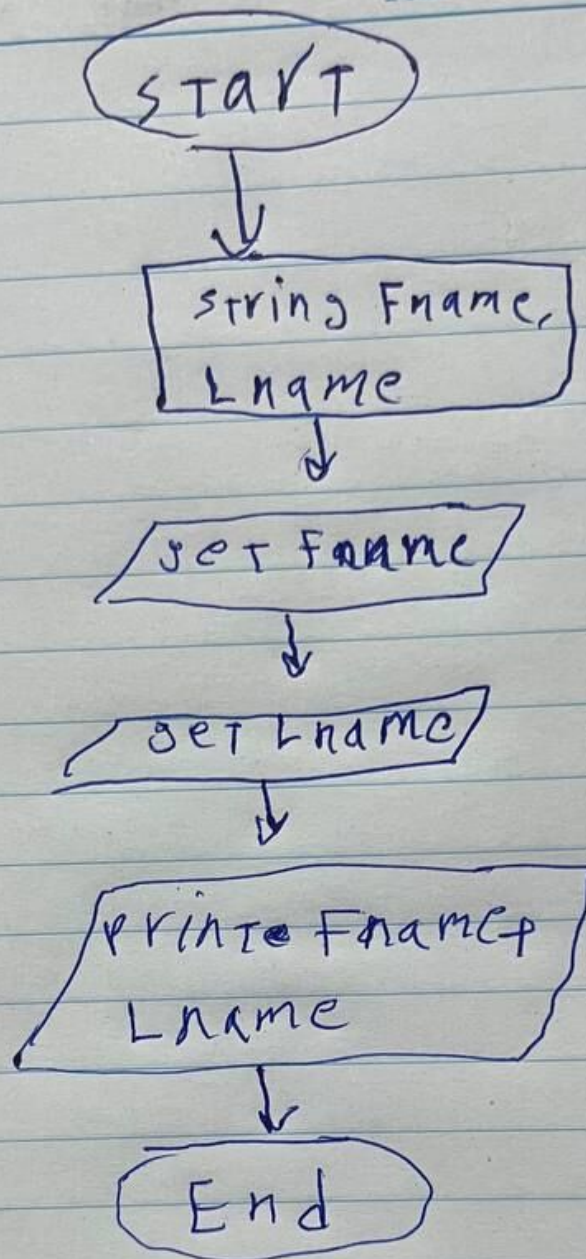 START
string Fname,
Lname
get Fname
get Lname
Printe Fname+
Lname
End